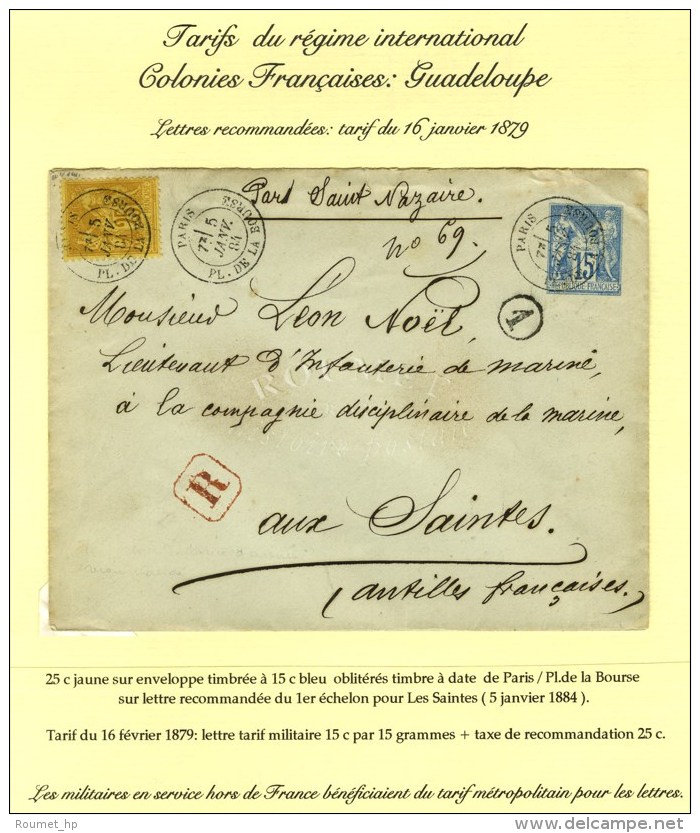 Tarifs du régime international
Colonies Françaises: Guadeloupe
Lettres recommandées: tarif du 16 janvier 1879
Part Saint Nazaire.
PARIS
7E 5
JANV.
84
PL. DE LA BOURSE
PARIS
7E 5
JANV.
84
PL. DE LA BOURSE
PARIS
7E 5
15
REPUBLIQUE FRANCAISE
no 69.
1
Monsieur Léon Noël,
Lieutenant d'Infanterie de marine,
à la compagnie disciplinaire de la marine,
R
aux Saintes.
(antilles françaises.
25 c jaune sur enveloppe timbrée à 15 c bleu oblitérés timbre à date de Paris / Pl.de la Bourse
sur lettre recommandée du 1er échelon pour Les Saintes ( 5 janvier 1884 ).
Tarif du 16 février 1879: lettre tarif militaire 15 c par 15 grammes + taxe de recommandation 25 c.
Les militaires en service hors de France bénéficiaient du tarif métropolitain pour les lettres.
Roumet_hp
delcampe.net